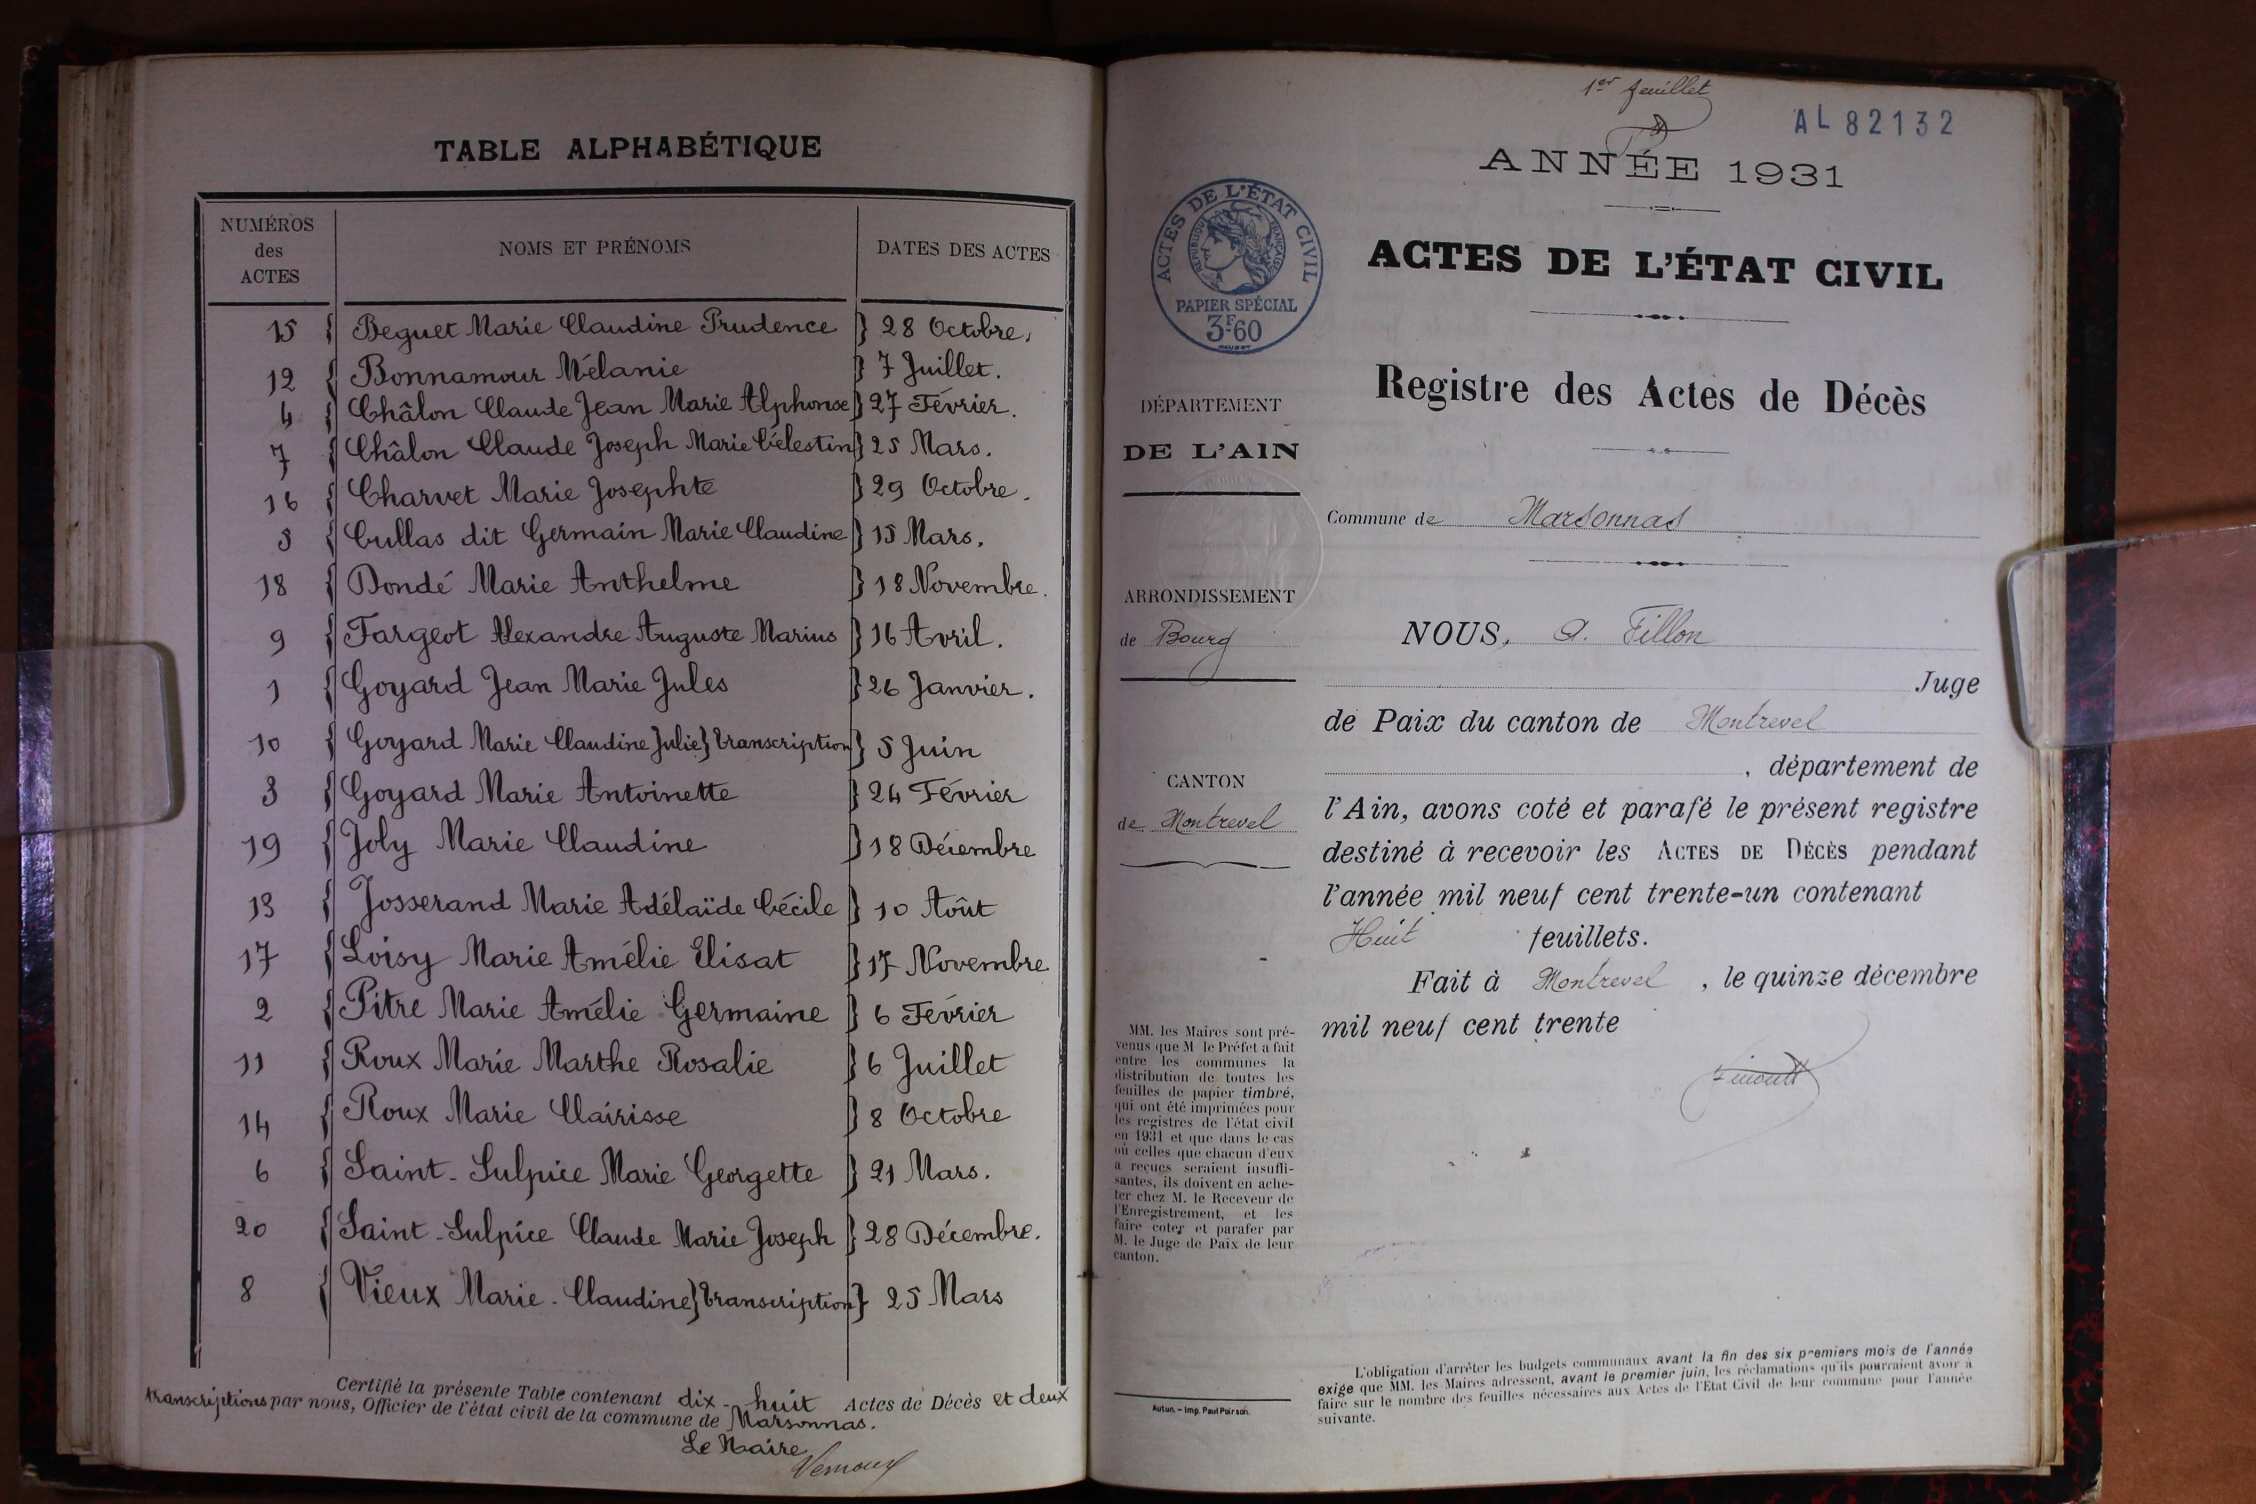 TABLE ALPHABÉTIQUE
NUMÉROS des ACTES NOMS ET PRÉNOMS DATES DES ACTES
15 { Beguet Marie Claudine Prudence } 28 Octobre.
12 { Bonnamour Mélanie } 7 Juillet.
4 { Châlon Claude Jean Marie Alphonse } 27 Février.
7 { Châlon Claude Joseph Marie Célestin } 25 Mars.
16 { Charvet Marie Josephte } 29 Octobre.
5 { Cullas dit Germain Marie Claudine } 15 Mars.
18 { Dondé Marie Anthelme } 18 Novembre.
9 { Fargeot Alexandre Auguste Marius } 16 Avril.
1 { Goyard Jean Marie Jules } 26 Janvier.
10 { Goyard Marie Claudine Julie } transcription } 5 Juin
3 { Goyard Marie Antoinette } 24 Février
19 { Joly Marie Claudine } 18 Décembre
13 { Josserand Marie Adélaïde Cécile } 10 Août
17 { Loisy Marie Amélie Elisat } 17 Novembre
2 { Pitre Marie Amélie Germaine } 6 Février
11 { Roux Marie Marthe Rosalie } 6 Juillet
14 { Roux Marie Clairisse } 8 Octobre
6 { Saint-Sulpice Marie Georgette } 21 Mars.
20 { Saint-Sulpice Claude Marie Joseph } 28 Décembre.
8 { Vieux Marie-Claudine } transcription } 25 Mars
Certifié la présente Table contenant dix-huit Actes de Décès et deux
transcriptions par nous, Officier de l'état civil de la commune de Marsonnas.
Le Maire
Vernoux
1er feuillet
AL 82132
ANNÉE 1931
ACTES DE L'ÉTAT CIVIL
RÉPUBLIQUE FRANÇAISE
PAPIER SPÉCIAL
3F.60
ACTES DE L'ÉTAT CIVIL
Registre des Actes de Décès
DÉPARTEMENT
DE L'AIN
ARRONDISSEMENT
de Bourg
CANTON
de Montrevel
MM. les Maires sont pré-
venus que M le Préfet a fait
entre les communes la
distribution de toutes les
feuilles de papier timbré,
qui ont été imprimées pour
les registres de l'état civil
en 1931 et que dans le cas
où celles que chacun d'eux
a reçues seraient insuffi-
santes, ils doivent en ache-
ter chez M. le Receveur de
l'Enregistrement, et les
faire coter et parafer par
M. le Juge de Paix de leur
canton.
Autun. – Imp. Paul Poirson.
Commune de Marsonnas
NOUS, A. Fillon
Juge
de Paix du canton de Montrevel
, département de
l'Ain, avons coté et parafé le présent registre
destiné à recevoir les ACTES DE DÉCÈS pendant
l'année mil neuf cent trente-un contenant
Huit feuillets.
Fait à Montrevel, le quinze décembre
mil neuf cent trente
L'obligation d'arrêter les budgets communaux avant la fin des six premiers mois de l'année
exige que MM. les Maires adressent, avant le premier juin, les réclamations qu'ils pourraient avoir à
faire sur le nombre des feuilles nécessaires aux Actes de l'Etat Civil de leur commune pour l'année
suivante.